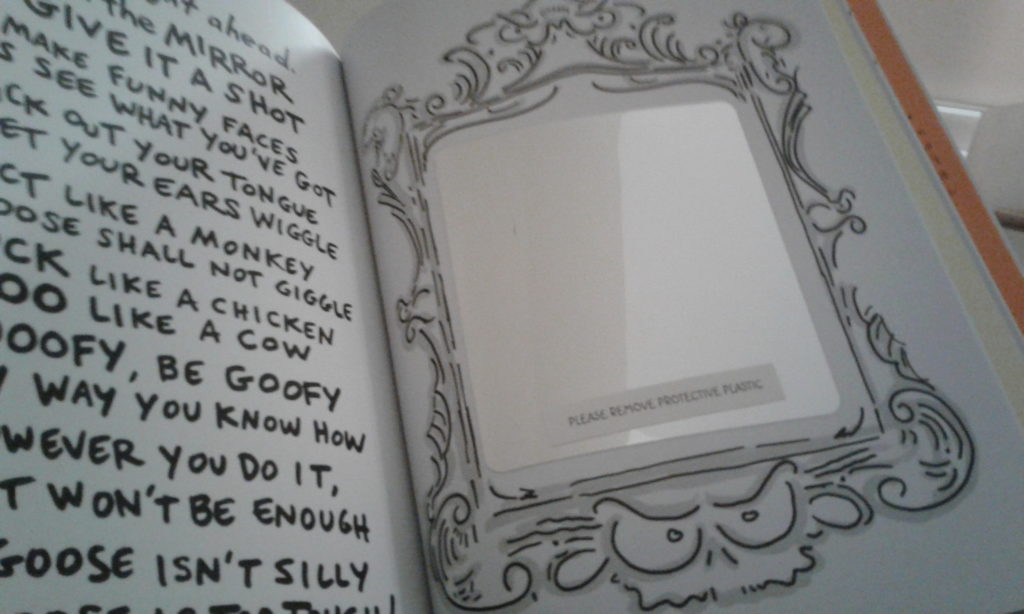 ahead.
the MIRROR
GIVE IT A SHOT
MAKE FUNNY FACES
SEE WHAT YOU'VE GOT
OUT YOUR TONGUE
YOUR EARS WIGGLE
LIKE A MONKEY
SHALL NOT GIGGLE
LIKE A CHICKEN
LIKE A COW
OOFY, BE GOOFY
WAY YOU KNOW HOW
WEVER YOU DO IT,
T WON'T BE ENOUGH
GOOSE ISN'T SILLY
PLEASE REMOVE PROTECTIVE PLASTIC